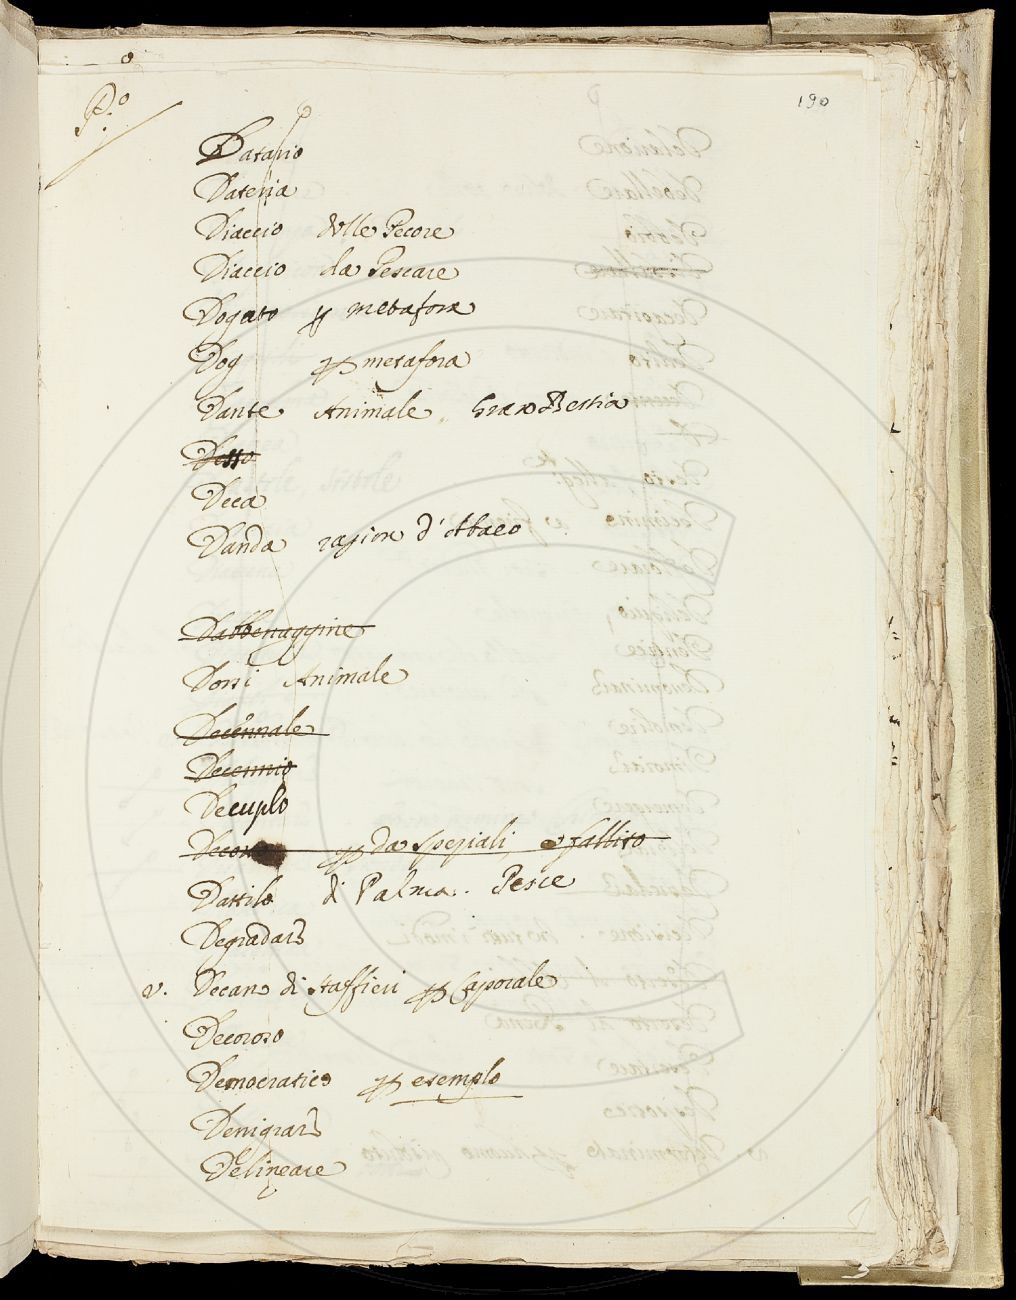 190
P.o
Datario
Dateria
Diaccio delle Pecore
Diaccio da Pescare
Dogato p metafora
Dog p metafora
Dante Animale Gran Bestia
Desso
Deca
Danda ragion d'Abaco
Dabbenaggine
Dorsi Animale
Decennale
Decennio
Decuplo
p da speziali, e fallito
Dattilo di Palma. Pesce
Degradare
v. Decano di staffieri p Caporale
Decoroso
Democratico p esemplo
Denigrare
Delineare